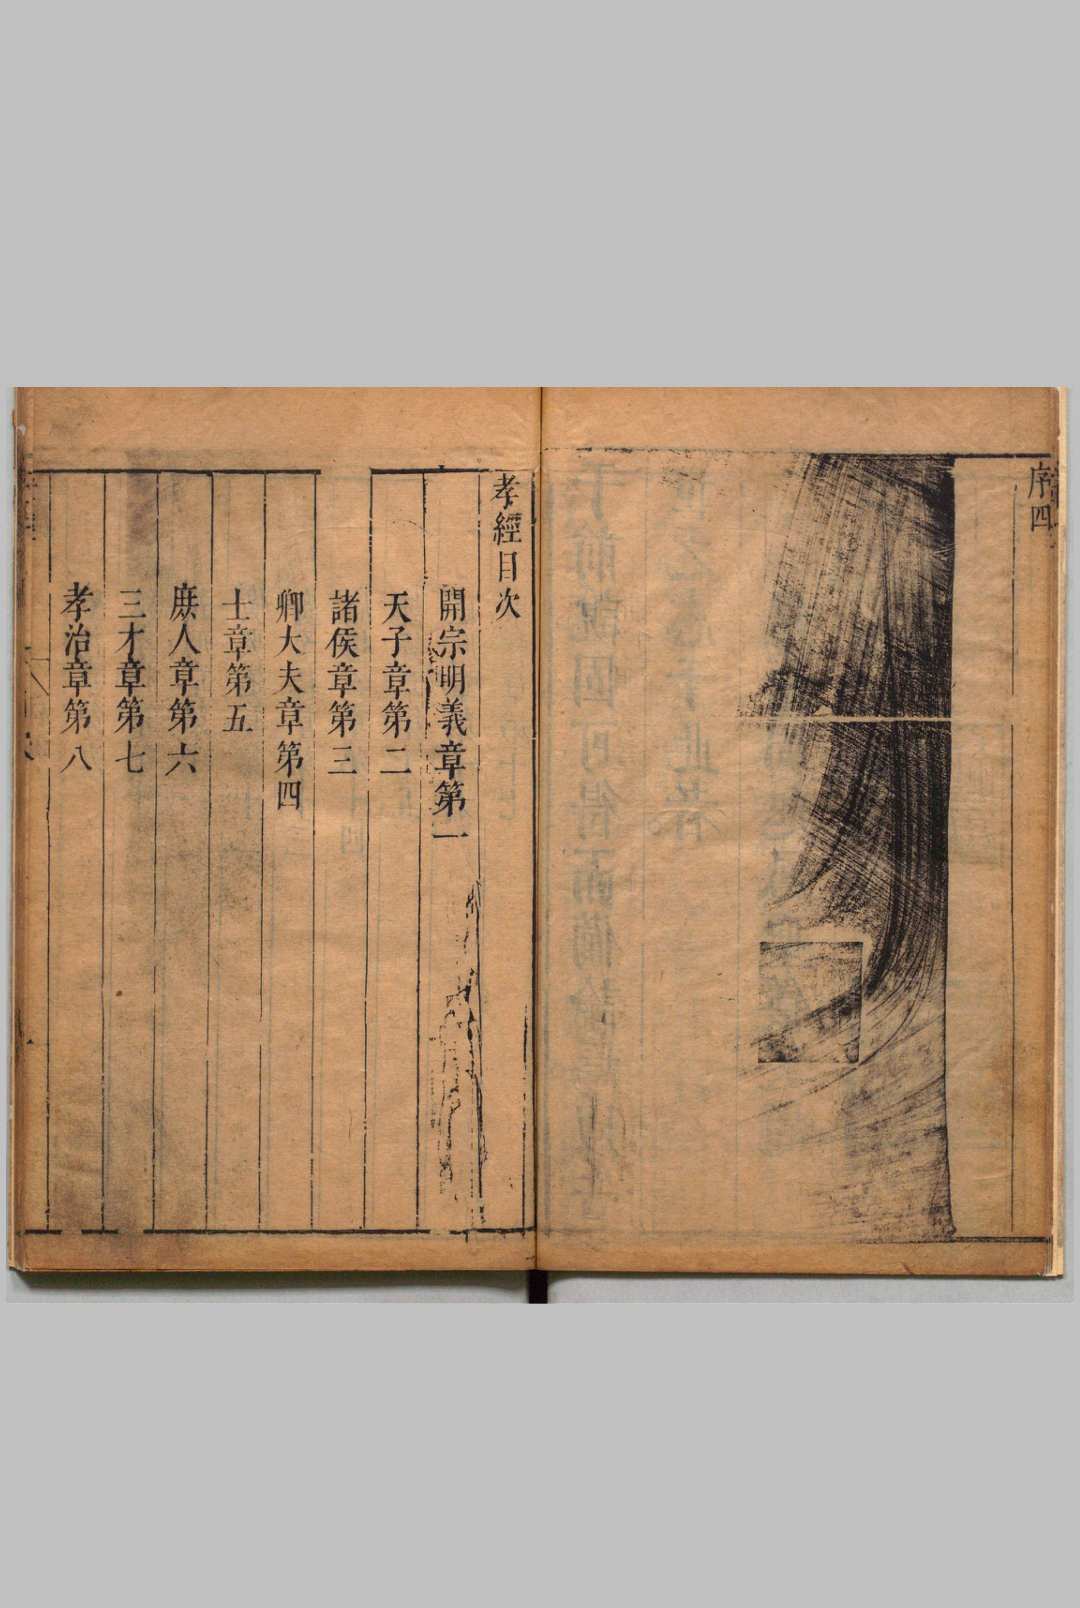 序四
孝經目次
開宗明義章第一
天子章第二
諸侯章第三
卿大夫章第四
士章第五
庶人章第六
三才章第七
孝治章第八